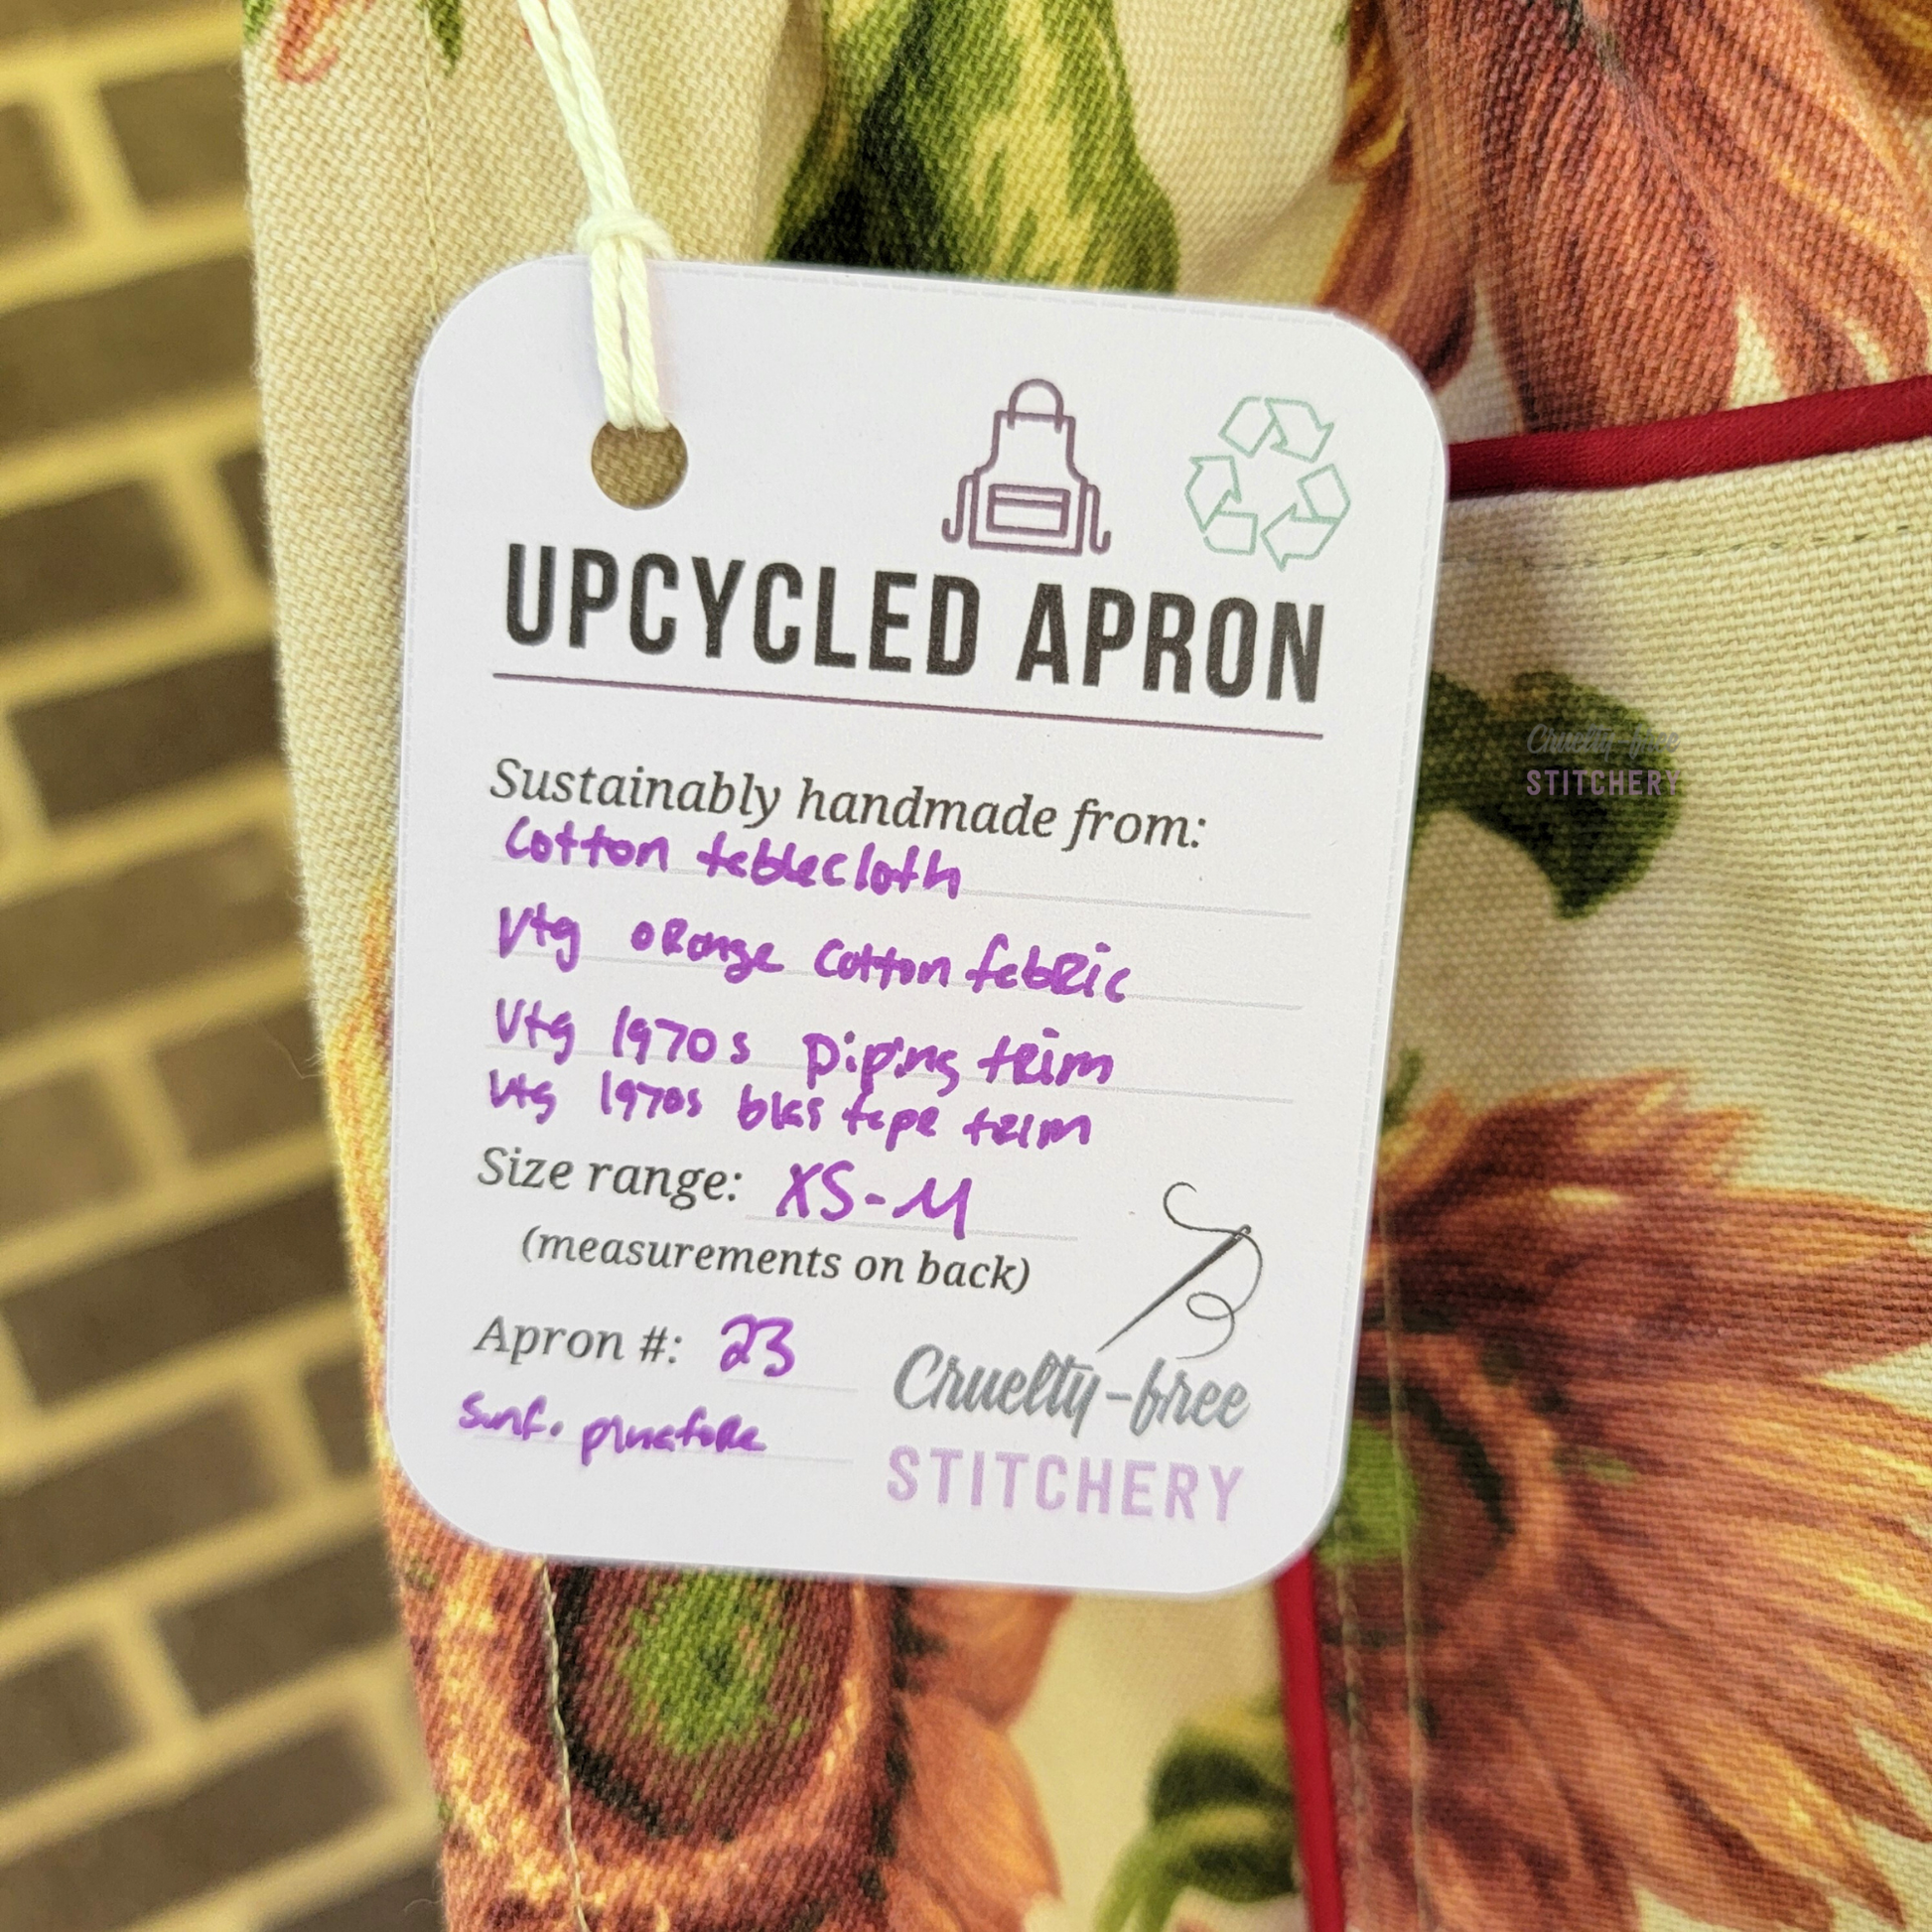 UPCYCLED APRON
Sustainably handmade from:
Cotton tablecloth
Vtg orange cotton fabric
Vtg 1970s piping trim
Vtg 1970s bias tape trim
Size range: XS-M
(measurements on back)
Apron #: 23
Sunf. pinafore
Cruelty-free
STITCHERY
Cruelty-free
STITCHERY